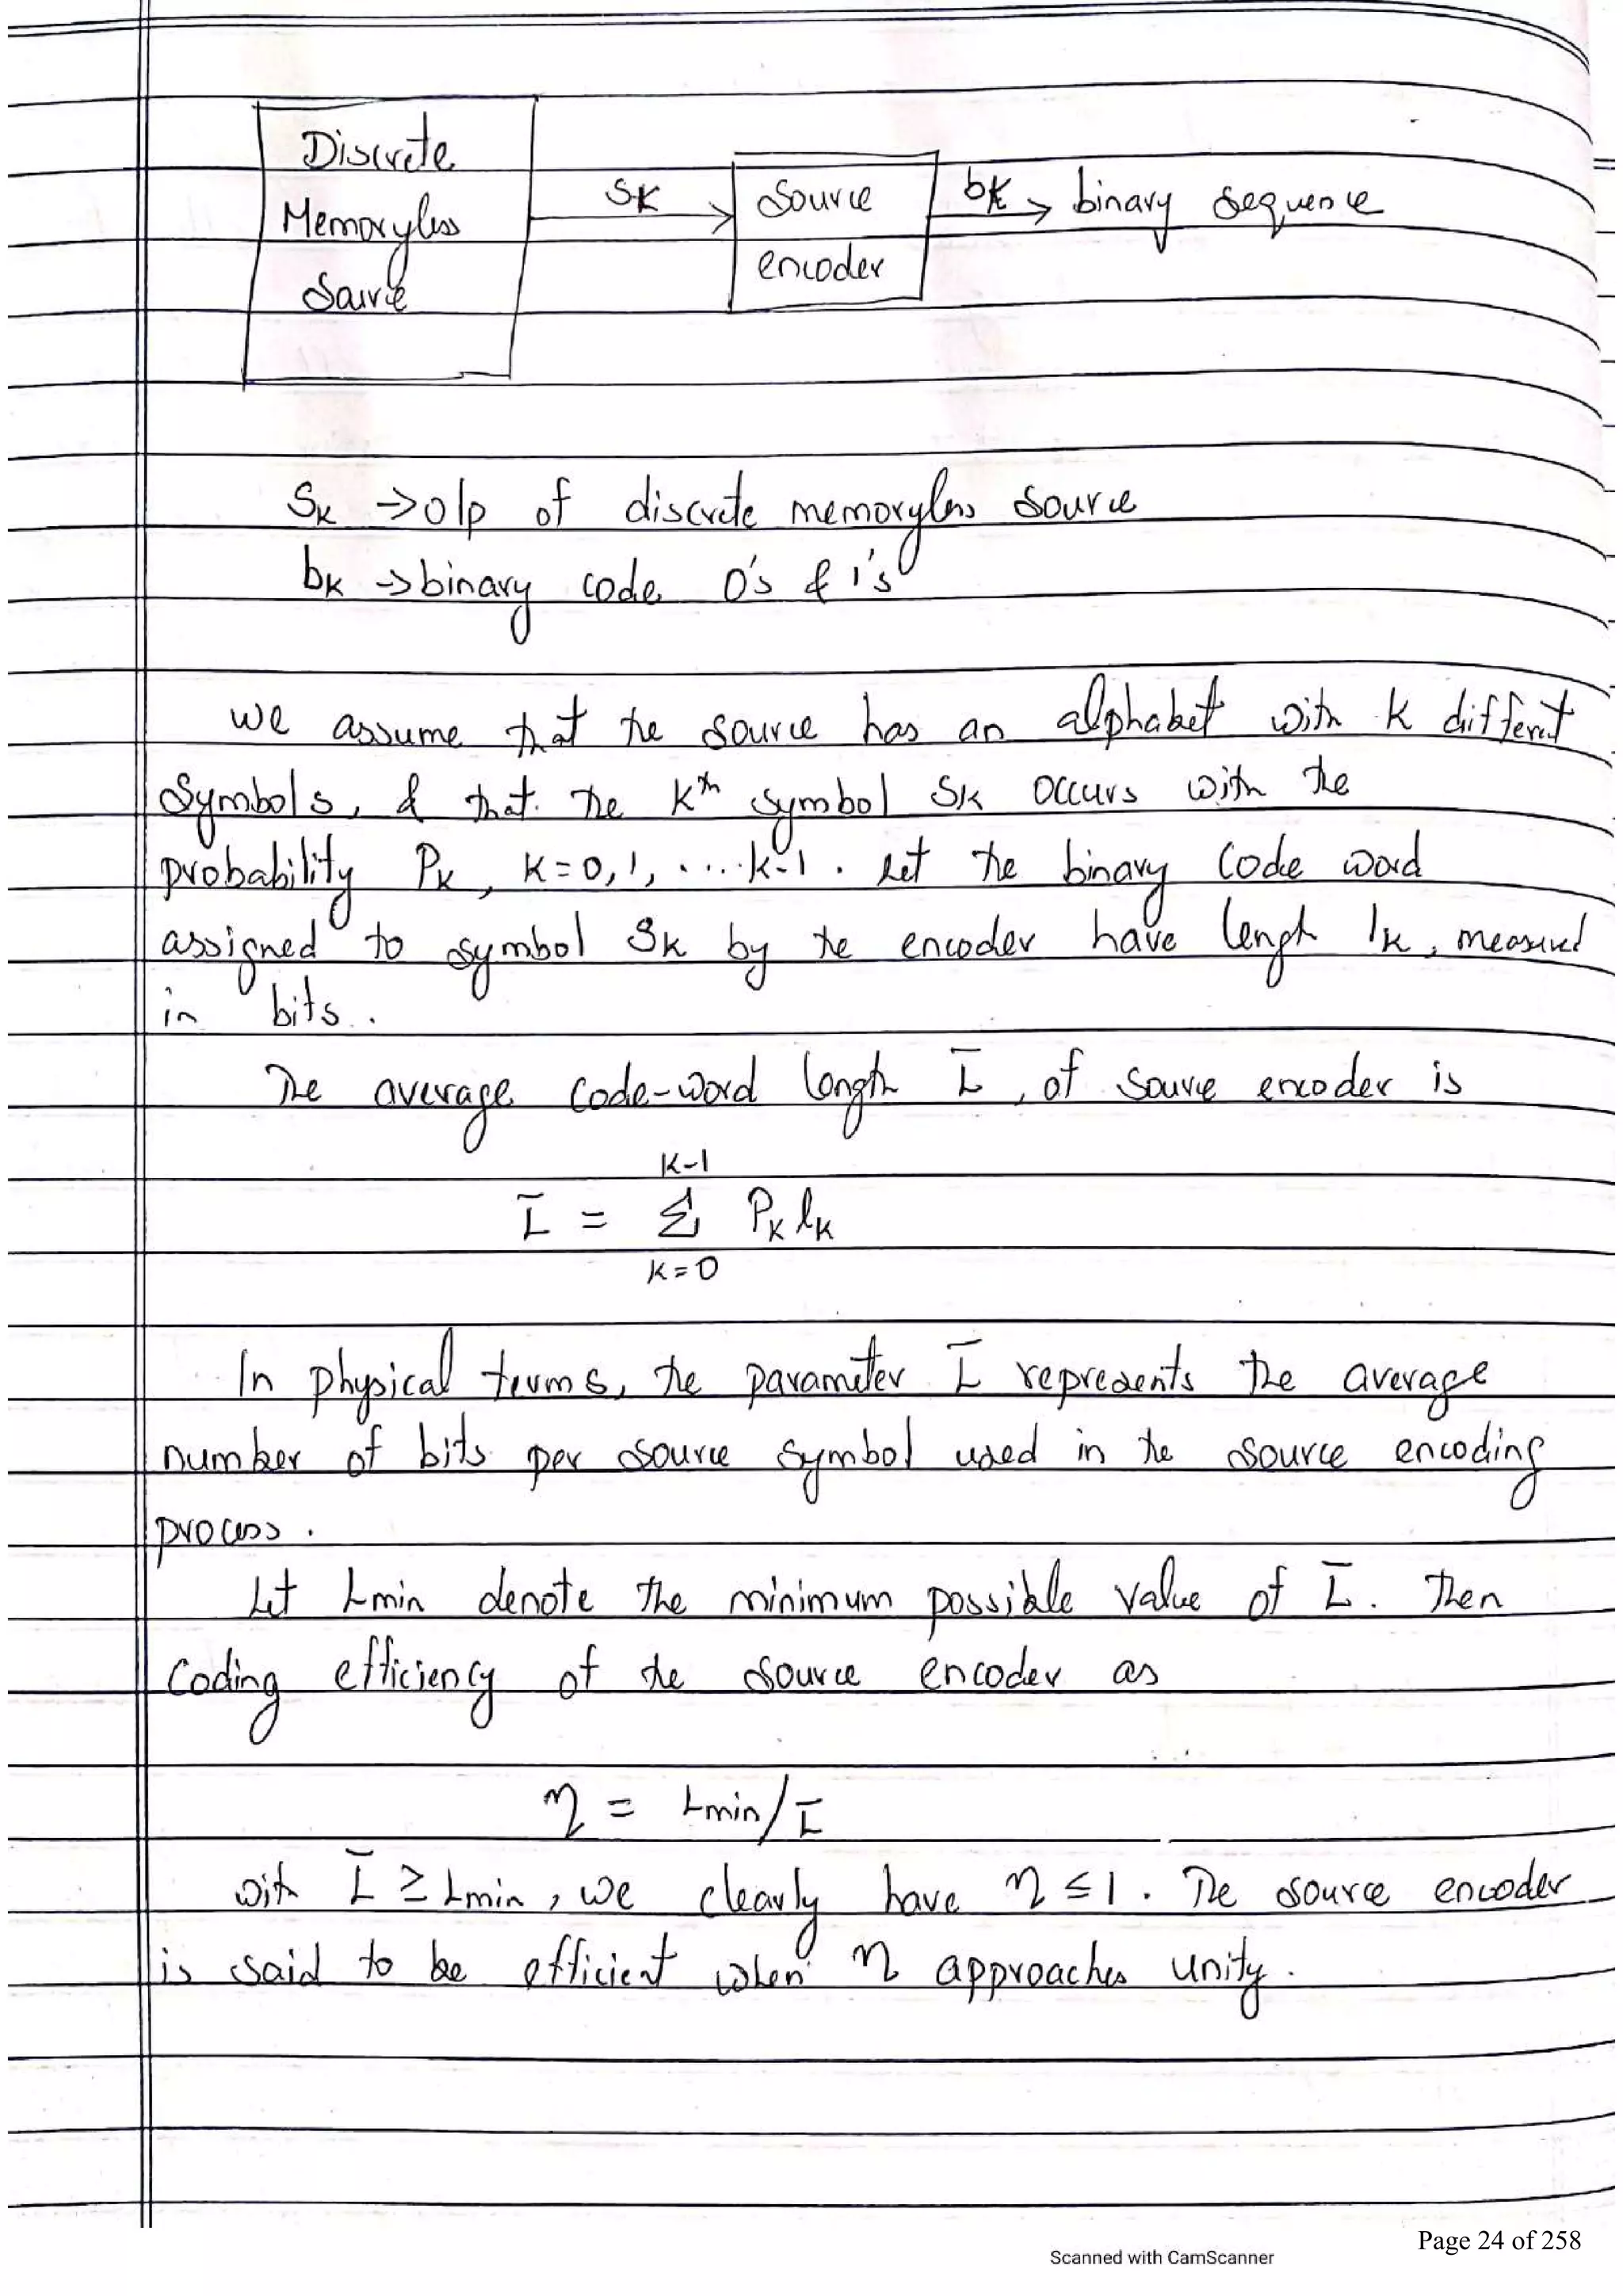 Discrete
Memoryless
Source
SK
Source
encoder
bK
binary sequence
SK → o/p of discrete memoryless source
bK → binary code 0's & 1's
We assume that the source has an alphabet with K different
symbols, & that the Kth symbol SK occurs with the
probability PK, K = 0, 1, .... k-1. Let the binary code word
assigned to symbol SK by the encoder have lengh lK, measured
in bits.
The average code-word length L̄, of source encoder is
L̄ = Σ_{K=0}^{K-1} PK lK
In physical terms, the parameter L̄ represents the average
number of bits per source symbol used in the source encoding
process.
Let Lmin denote the minimum possible value of L̄. Then
coding efficiency of the source encoder as
η = Lmin/L̄
with L̄ ≥ Lmin, we clearly have η ≤ 1. The source encoder
is said to be efficient when η approaches unity.
Page 24 of 258
Scanned with CamScanner